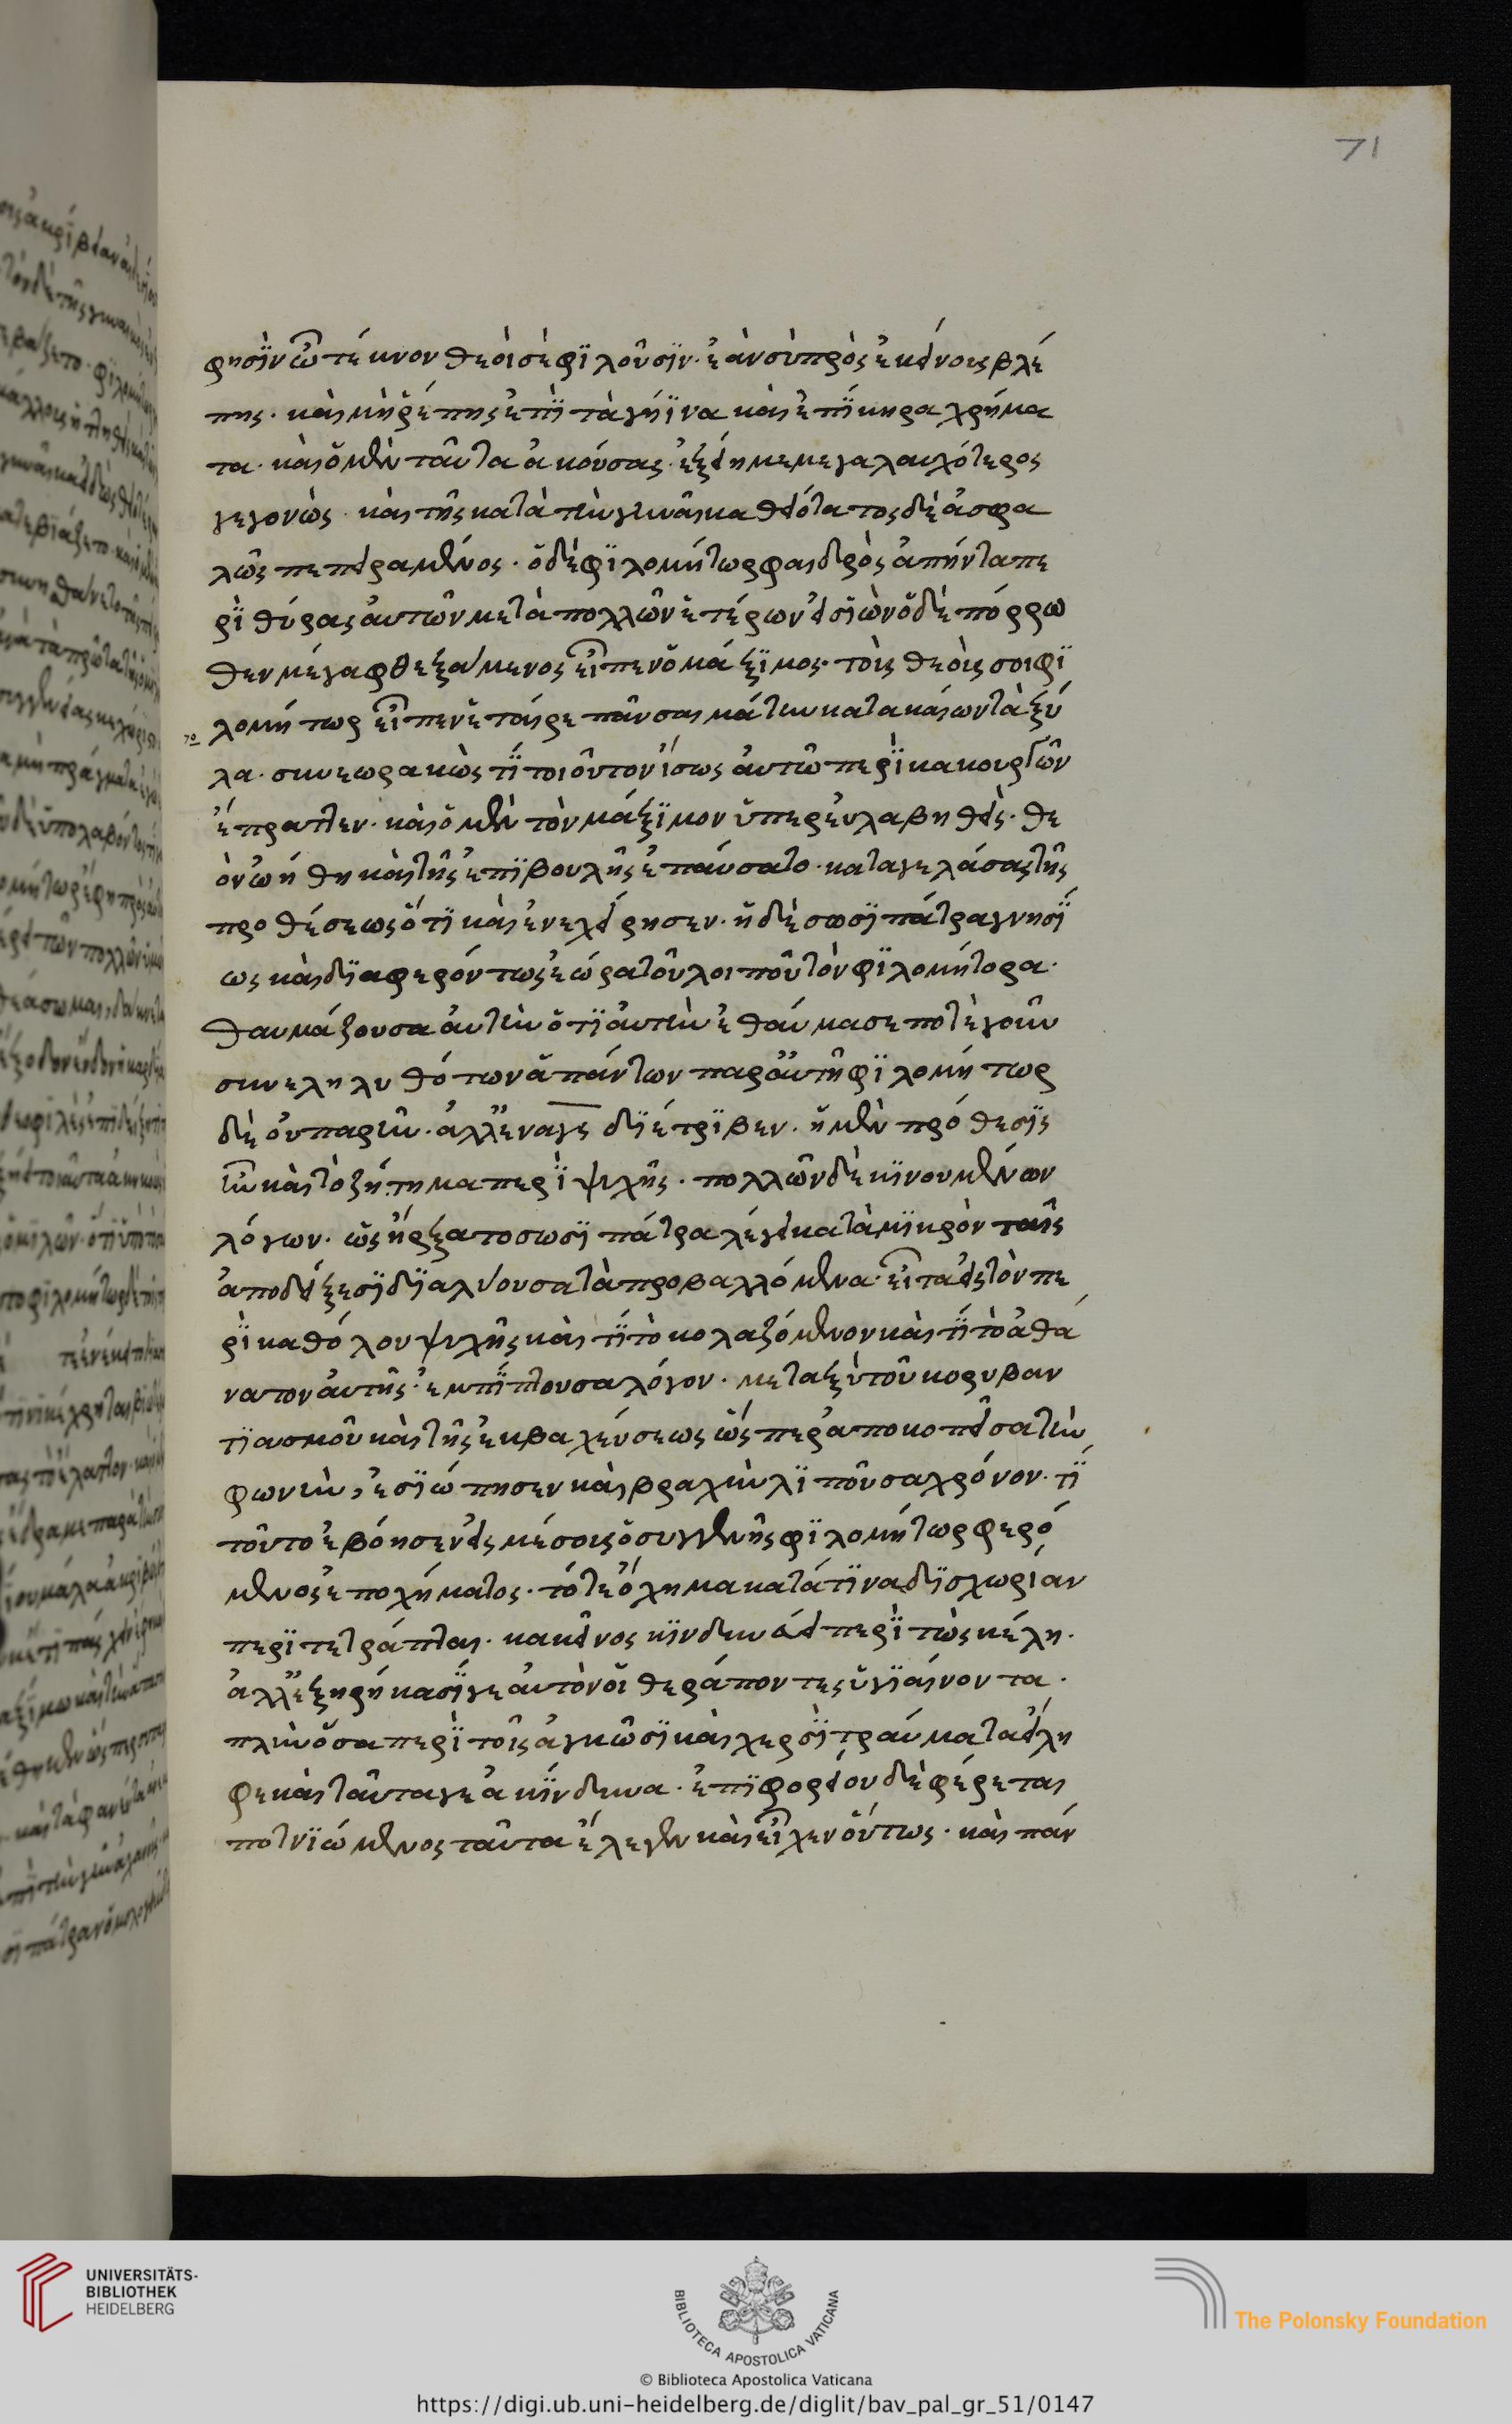 71
φησὶν ὦ τέκνον θεοί σε φιλοῦσιν. ἐὰν σὺ πρὸς ἐκείνους βλέ
πῃς. καὶ μὴ ῥέπῃς ἐπὶ τὰ γήϊνα καὶ ἐπίκηρα χρήμα
τα. καὶ ὁ μὲν ταῦτα ἀκούσας. ἐξῄει μεμεγαλαυχότερος
γεγονὼς. καὶ τῆς κατὰ τὴν γυναῖκα θειότατος δὲ ἀσφα
λῶς πεπειραμένος. ὁ δὲ φιλομήτωρ φαιδρὸς ἀπήντα πε
ρὶ θύρας αὐτῶν μετὰ πολλῶν ἑτέρων εἰσιὼν ὁ δὲ πόρρω
θεν μέγα φθεγξάμενος εἶπεν ὁ μάξιμος. τοῖς θεοῖς σοι φι
λομήτωρ εἶπεν ἑταῖρε παῦσαι μάτην κατακαίων τὰ ξύ
λα. συνεωρακὼς τὶ τοιοῦτον ἴσως αὐτῶ περὶ κακουργῶν
ἔπραττεν. καὶ ὁ μὲν τὸν μάξιμον ὑπερευλαβηθεὶς. θε
ὸν ᾠήθη καὶ τῆς ἐπιβουλῆς ἐπαύσατο. καταγελάσας τῆς
προθέσεως ὅτι καὶ ἐνεχείρησεν. ἡ δὲ σωσιπάτρα γνησί
ως καὶ διαφερόντως ἑώρα τοῦ λοιποῦ τὸν φιλομήτορα.
θαυμάζουσα αὐτὴν ὅτι αὐτὴν ἐθαύμασε ποτὲ γοῦν
συνεληλυθότων ἁπάντων παρ' αὐτῇ φιλομήτωρ
δὲ οὐ παρῆν. ἀλλ' ἐν αγε διέτριβεν. ἡ μὲν πρόθεσις
ἦν καὶ τὸ ζήτημα περὶ ψυχῆς. πολλῶν δὲ κινουμένων
λόγων. ὡς ἤρξατο σωσιπάτρα λέγει κατὰ μικρὸν ταῖς
ἀποδείξεσι διαλύουσα τὰ προβαλλόμενα. εἶτα εἰς τὸν πε
ρὶ καθόλου ψυχῆς καὶ τί τὸ κολαζόμενον καὶ τί τὸ ἀθά
νατον αὐτῆς. ἐμπίπτουσα λόγον. μεταξὺ τοῦ κορυβαν
τιασμοῦ καὶ τῆς ἐκβακχεύσεως ὥσπερ ἀποκοπεῖσα τὴν
φωνὴν, ἐσιώπησεν καὶ βραχὺν λιποῦσα χρόνον. τί
τοῦτο ἐβόησεν εἰς μέσους ὁ συγγενὴς φιλομήτωρ φερό
μενος ἐπ' ὀχήματος. τό τε ὄχημα κατά τινα δυσχωρίαν
περιτετράπται. κακεῖνος κινδυνεύει περὶ τὼ σκέλη.
ἀλλ' ἐξῃρήκασί γε αὐτὸν οἱ θεράποντες ὑγιαίνοντα.
πλὴν ὅσα περὶ τοῖς ἀγκῶσι καὶ χερσὶ τραύματα εἴλη
φε καὶ ταῦτα γε ἀκίνδυνα. ἐπὶ φορείου δὲ φέρεται
ποτνιώμενος ταῦτα ἔλεγεν καὶ εἶχεν οὕτως. καὶ πάν
UNIVERSITÄTS-
BIBLIOTHEK
HEIDELBERG
BIBLIOTECA APOSTOLICA VATICANA
The Polonsky Foundation
© Biblioteca Apostolica Vaticana
https://digi.ub.uni-heidelberg.de/diglit/bav_pal_gr_51/0147